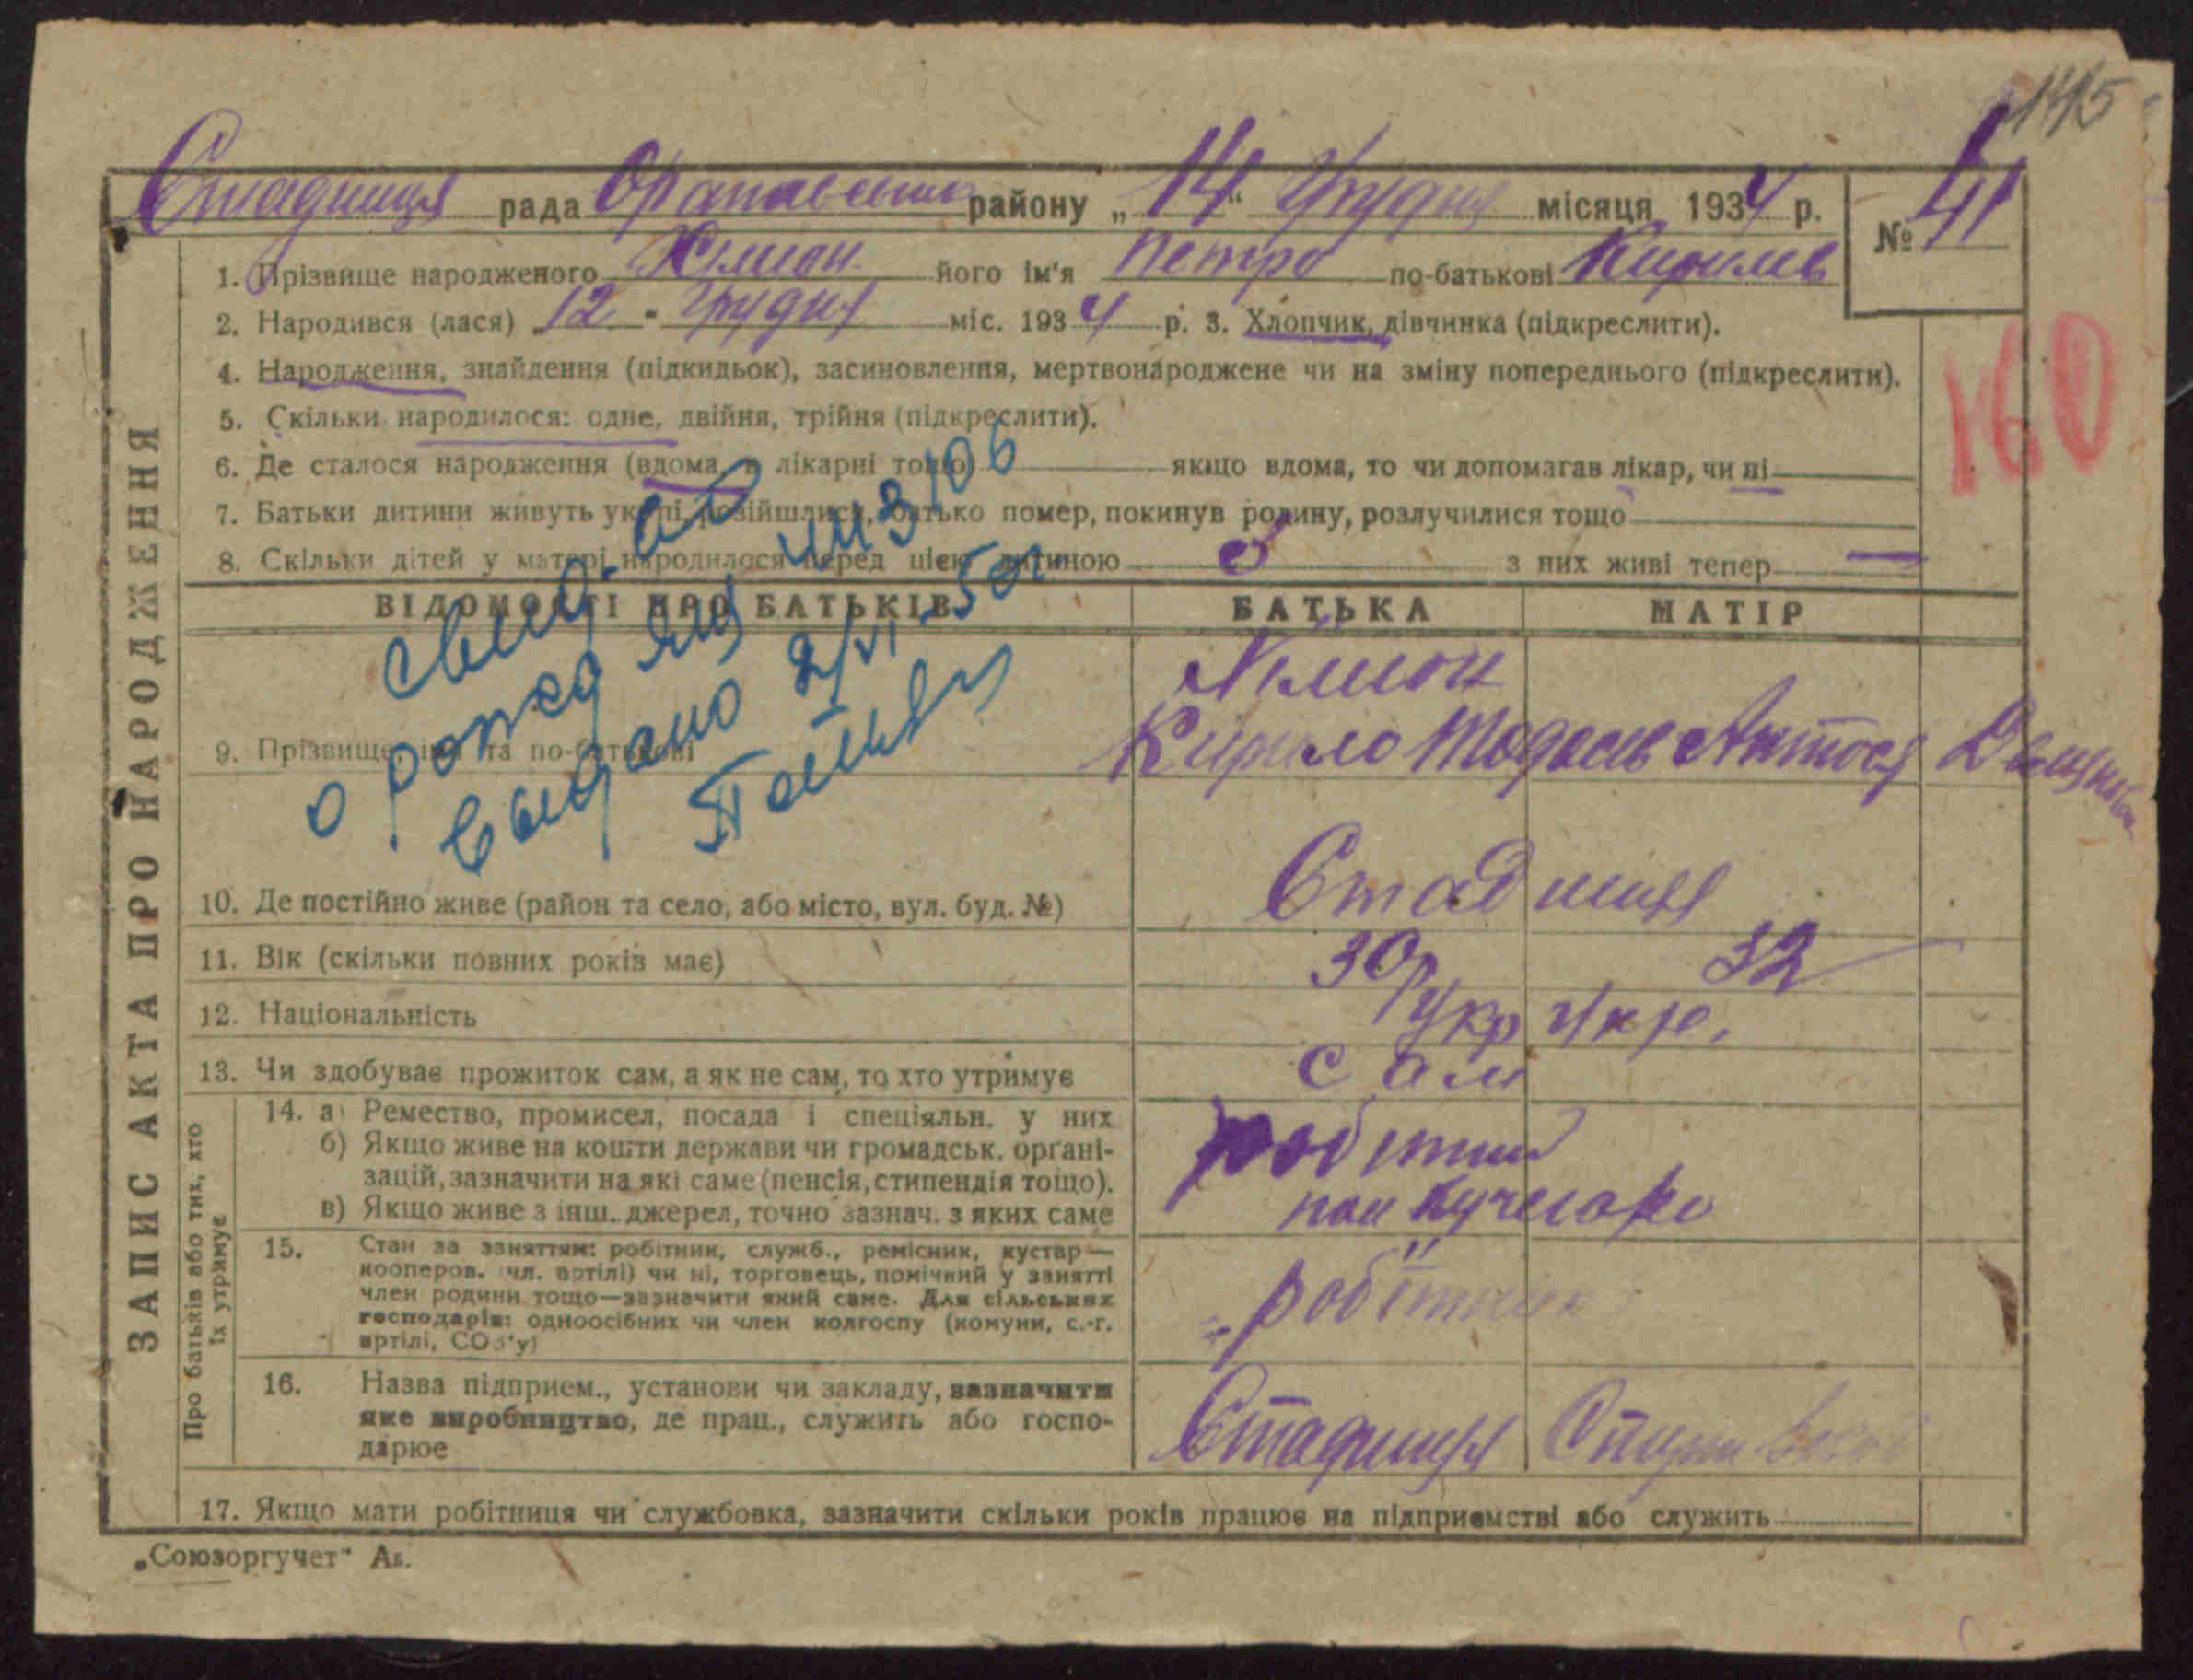 145
Стадниця рада Оратівського району „14“ Грудня місяця 1934 р.
№ 41
1. Прізвище народженого Хімион його ім'я Петро по-батькові Кирилів
2. Народився (лася) 12 - грудня міс. 1934 р. 3. Хлопчик, дівчинка (підкреслити).
160
4. Народження, знайдення (підкидьок), засиновлення, мертвонароджене чи на зміну попереднього (підкреслити).
5. Скільки народилося: одне, двійня, трійня (підкреслити).
6. Де сталося народження (вдома, в лікарні тощо) якщо вдома, то чи допомагав лікар, чи ні
7. Батьки дитини живуть укупі, розійшлися, батько помер, покинув родину, розлучилися тощо
8. Скільки дітей у матері народилося перед цією дитиною з них живі тепер —
свид-во
о рожд
выдано
ЗАПИС АКТА ПРО НАРОДЖЕННЯ
ВІДОМОСТІ ПРО БАТЬКІВ БАТЬКА МАТІР
9. Прізвище, ім'я та по-батькові Хімион
Кирило Тодосів
10. Де постійно живе (район та село, або місто, вул. буд. №) Стадниця
11. Вік (скільки повних років має) 30р 32
12. Національність Укр Укр.
13. Чи здобуває прожиток сам, а як не сам, то хто утримує сам
Про батьків або тих, хто їх утримує
14. а) Ремество, промисел, посада і спеціяльн. у них
б) Якщо живе на кошти держави чи громадськ. органі-
зацій, зазначити на які саме (пенсія, стипендія тощо).
в) Якщо живе з інш. джерел, точно зазнач. з яких саме
робітник
15. Стан за заняттям: робітник, служб., ремісник, кустар —
кооперов. чл. артілі) чи ні, торговець, помічний у занятті
член родини тощо—зазначити який саме. Для сільських
господарів: одноосібних чи член колгоспу (комуни, с.-г.
артілі, СОЗ'у)
робітник
16. Назва підприєм., установи чи закладу, зазначити
яке виробництво, де прац., служить або госпо-
дарює
Стадниця
17. Якщо мати робітниця чи службовка, зазначити скільки років працює на підприємстві або служить
„Союзоргучет“ Ав.